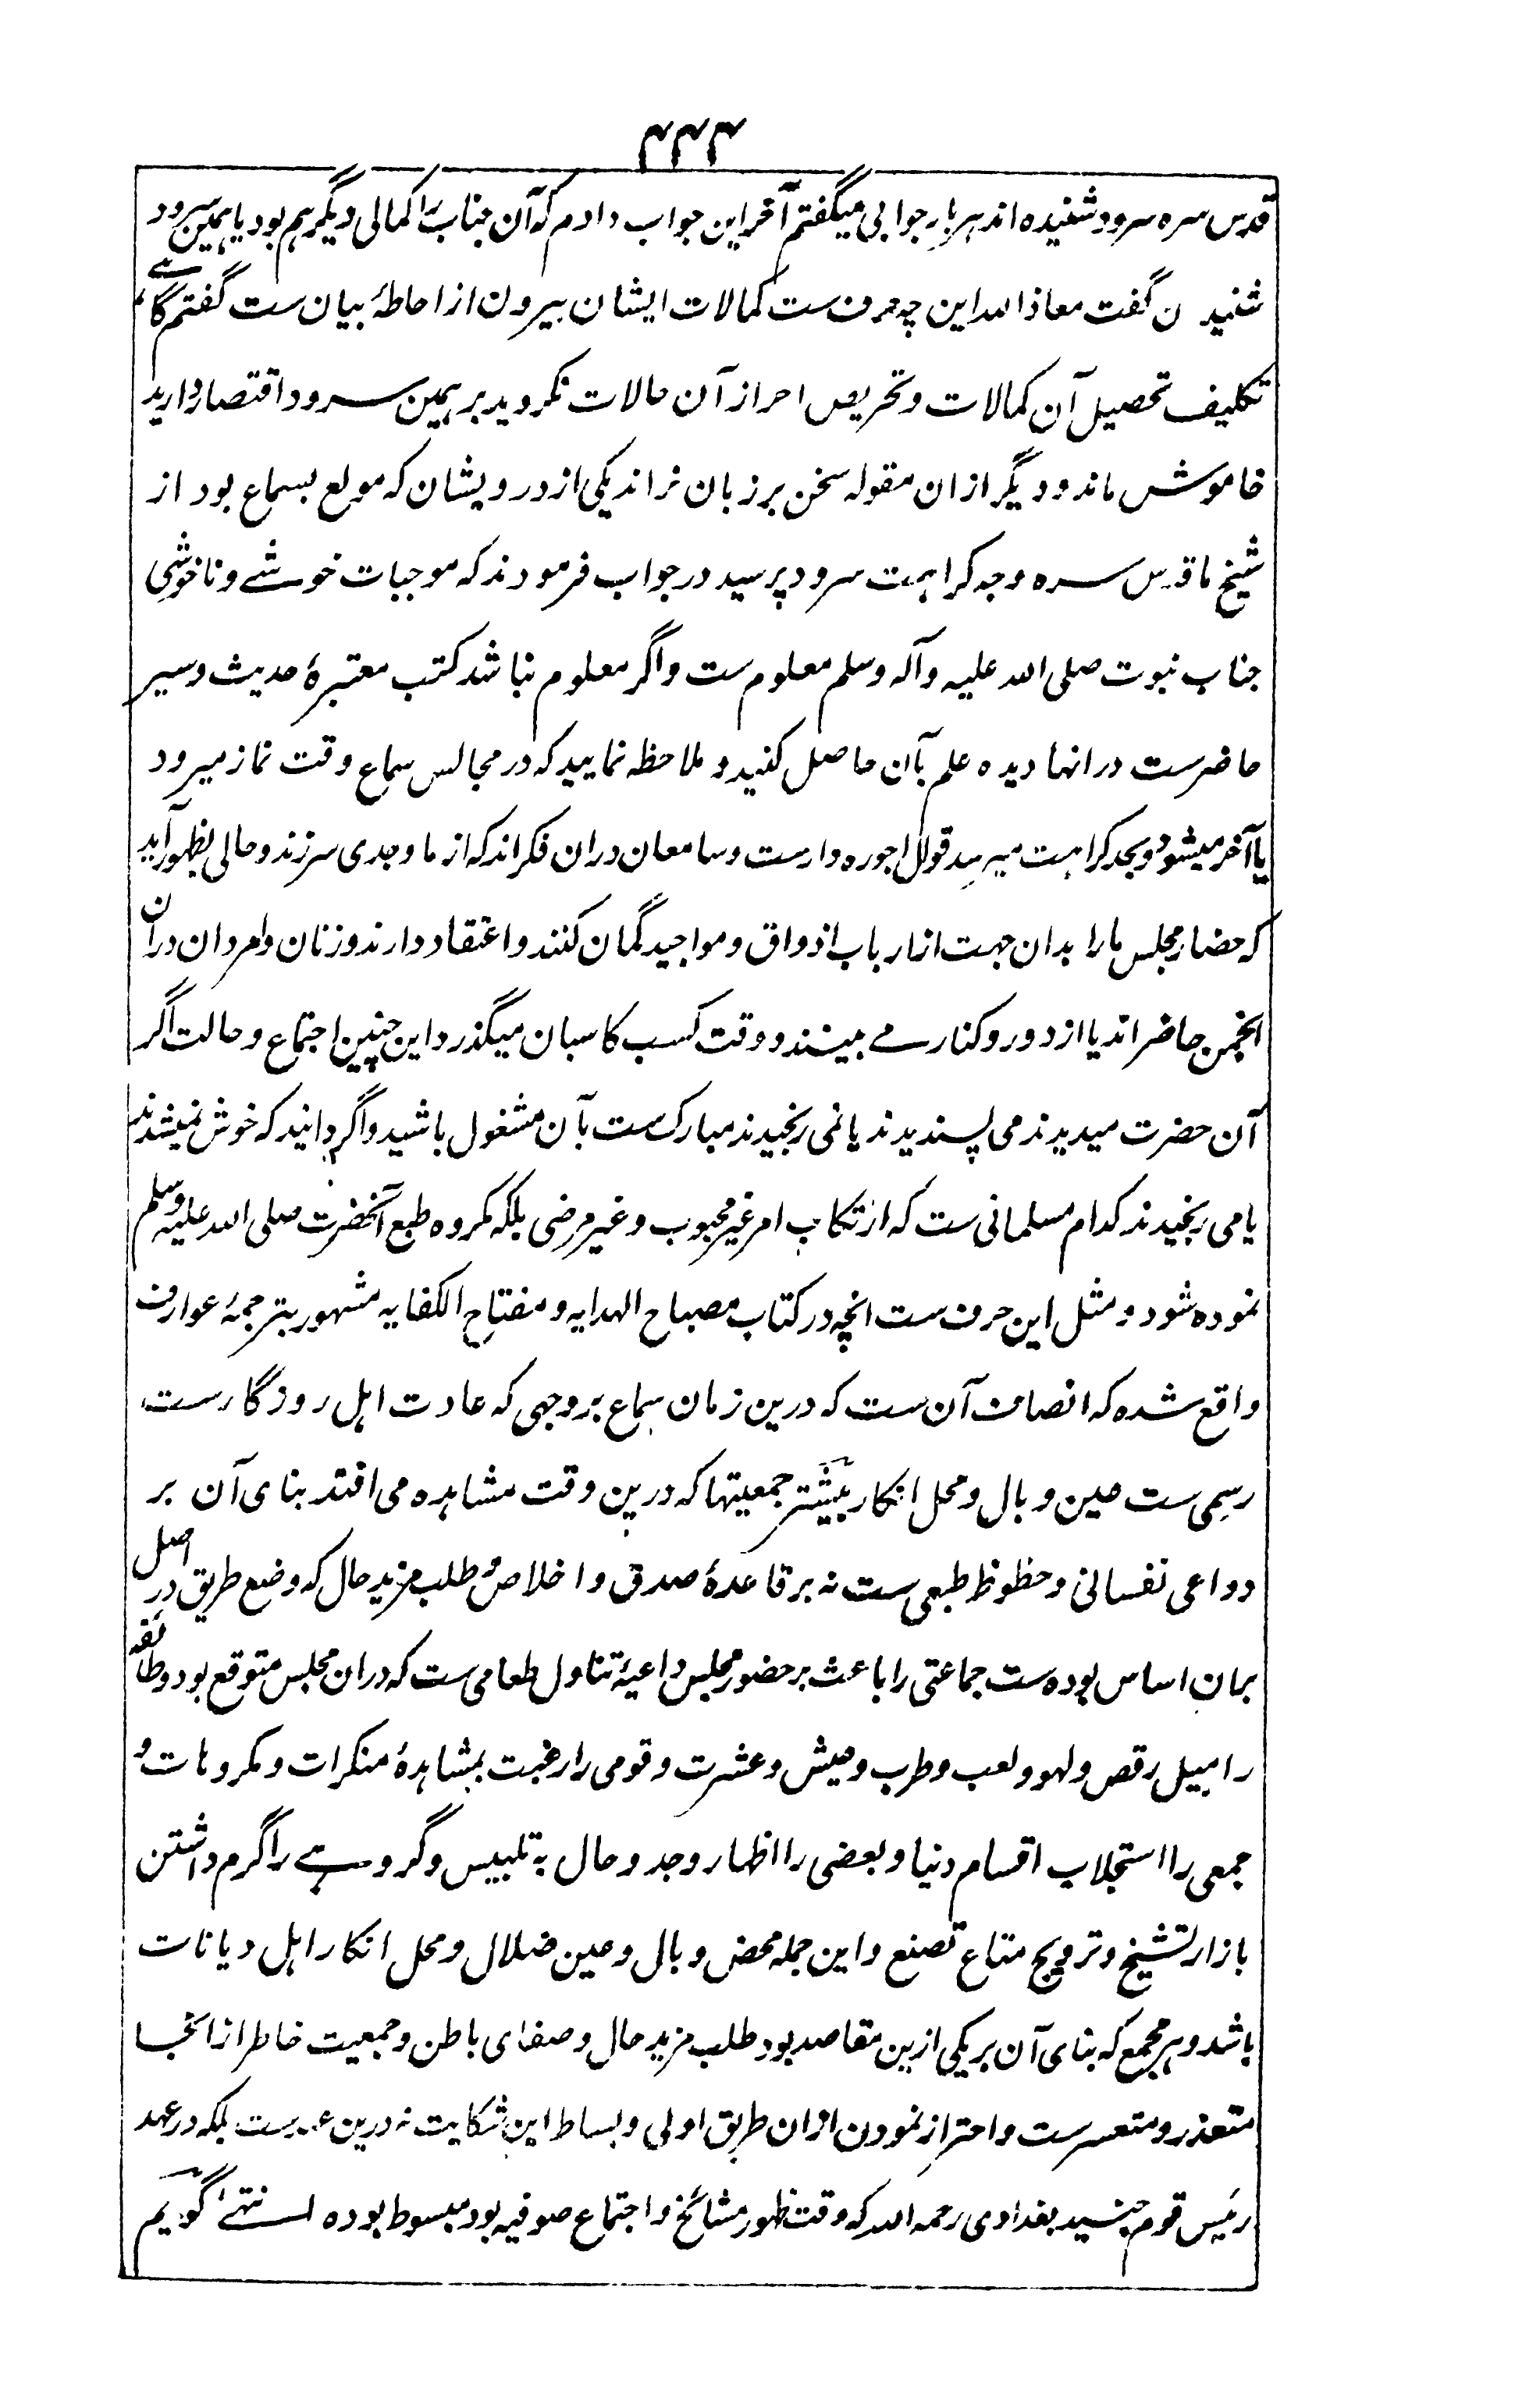 ۴۴۴
قدس سره سرود شنیده اند هر بار جوابی میگفتم آخر این جواب دادم که آن جناب را کمالی دیگر هم بود یا همین سرود
شنیدن گفت معاذ الله این چه حرف ست کمالات ایشان بیرون از احاطهٔ بیان ست گفتم گاہے
تکلیف تحصیل آن کمالات و تحریص احراز آن حالات نکردید بر همین سرود اقتصار دارید
خاموش ماند و دیگر ازان مقوله سخن بر زبان نراند یکی از درویشان که مولع بسماع بود از
شیخ ما قدس سره وجه کراهت سرود پرسید در جواب فرمودند که موجبات خوشے و ناخوشی
جناب نبوت صلی الله علیه وآله وسلم معلوم ست و اگر معلوم نباشد کتب معتبرهٔ حدیث و سیر
حاضرست در انها دیده علم بآن حاصل کنید و ملاحظه نمایید که در مجالس سماع وقت نماز میرود
یا آخر میشود و بحد کراهت میرسد قوال اجوره دارست و سامعان دران فکراند که از ما وجدی سر زند و حالی بظهور آید
که حضار مجلس ما را بدان جهت از ارباب اذواق و مواجید گمان کنند و اعتقاد دارند و زنان و امردان در آن
انجمن حاضراند یا از دور و کنار مے بینند و وقت کسب کاسبان میگذرد این چنین اجتماع و حالت اگر
آن حضرت میدیدند می پسندیدند یا نمی رنجیدند مبارک ست بآن مشغول باشید و اگر دانید که خوش نمیشدند
یا می رنجیدند کدام مسلمانی ست که ارتکاب امر غیر محبوب و غیر مرضی بلکه مکروه طبع آنحضرت صلی الله علیه وسلم
نموده شود و مثل این حرف ست انچه در کتاب مصباح الهدایه و مفتاح الکفایه مشهور بترجمهٔ عوارف
واقع شده که انصاف آن ست که درین زمان سماع بر وجهی که عادت اهل روزگارست
رسمی ست عین وبال و محل انکار بیشتر جمعیتها که درین وقت مشاهده می افتد بنای آن بر
دواعی نفسانی و حظوظ طبعی ست نه بر قاعدهٔ صدق و اخلاص و طلب مزید حال که وضع طریق در اصل
بران اساس بوده ست جماعتی را باعث بر حضور مجلس داعیهٔ تناول طعامی ست که دران مجلس متوقع بود و طائفه
را میل رقص و لهو و لعب و طرب و عیش و عشرت و قومی را رغبت بمشاهدهٔ منکرات و مکروهات و
جمعی را استجلاب اقسام دنیا و بعضی را اظهار وجد و حال به تلبیس و گروہے را گرم داشتن
بازار تشیخ و ترویج متاع تصنع و این جمله محض وبال و عین ضلال و محل انکار اهل دیانات
باشد و هر مجمع که بنای آن بر یکی ازین مقاصد بود طلب مزید حال و صفای باطن و جمعیت خاطر ازانجا
متعذر و متعسرست و احتراز نمودن ازان طریق اولی و بساط این شکایت نه درین عهدست بلکه در عهد
رئیس قوم جنید بغدادی رحمه الله که وقت ظهور مشائخ و اجتماع صوفیه بود مبسوط بوده انتهےٰ گویم